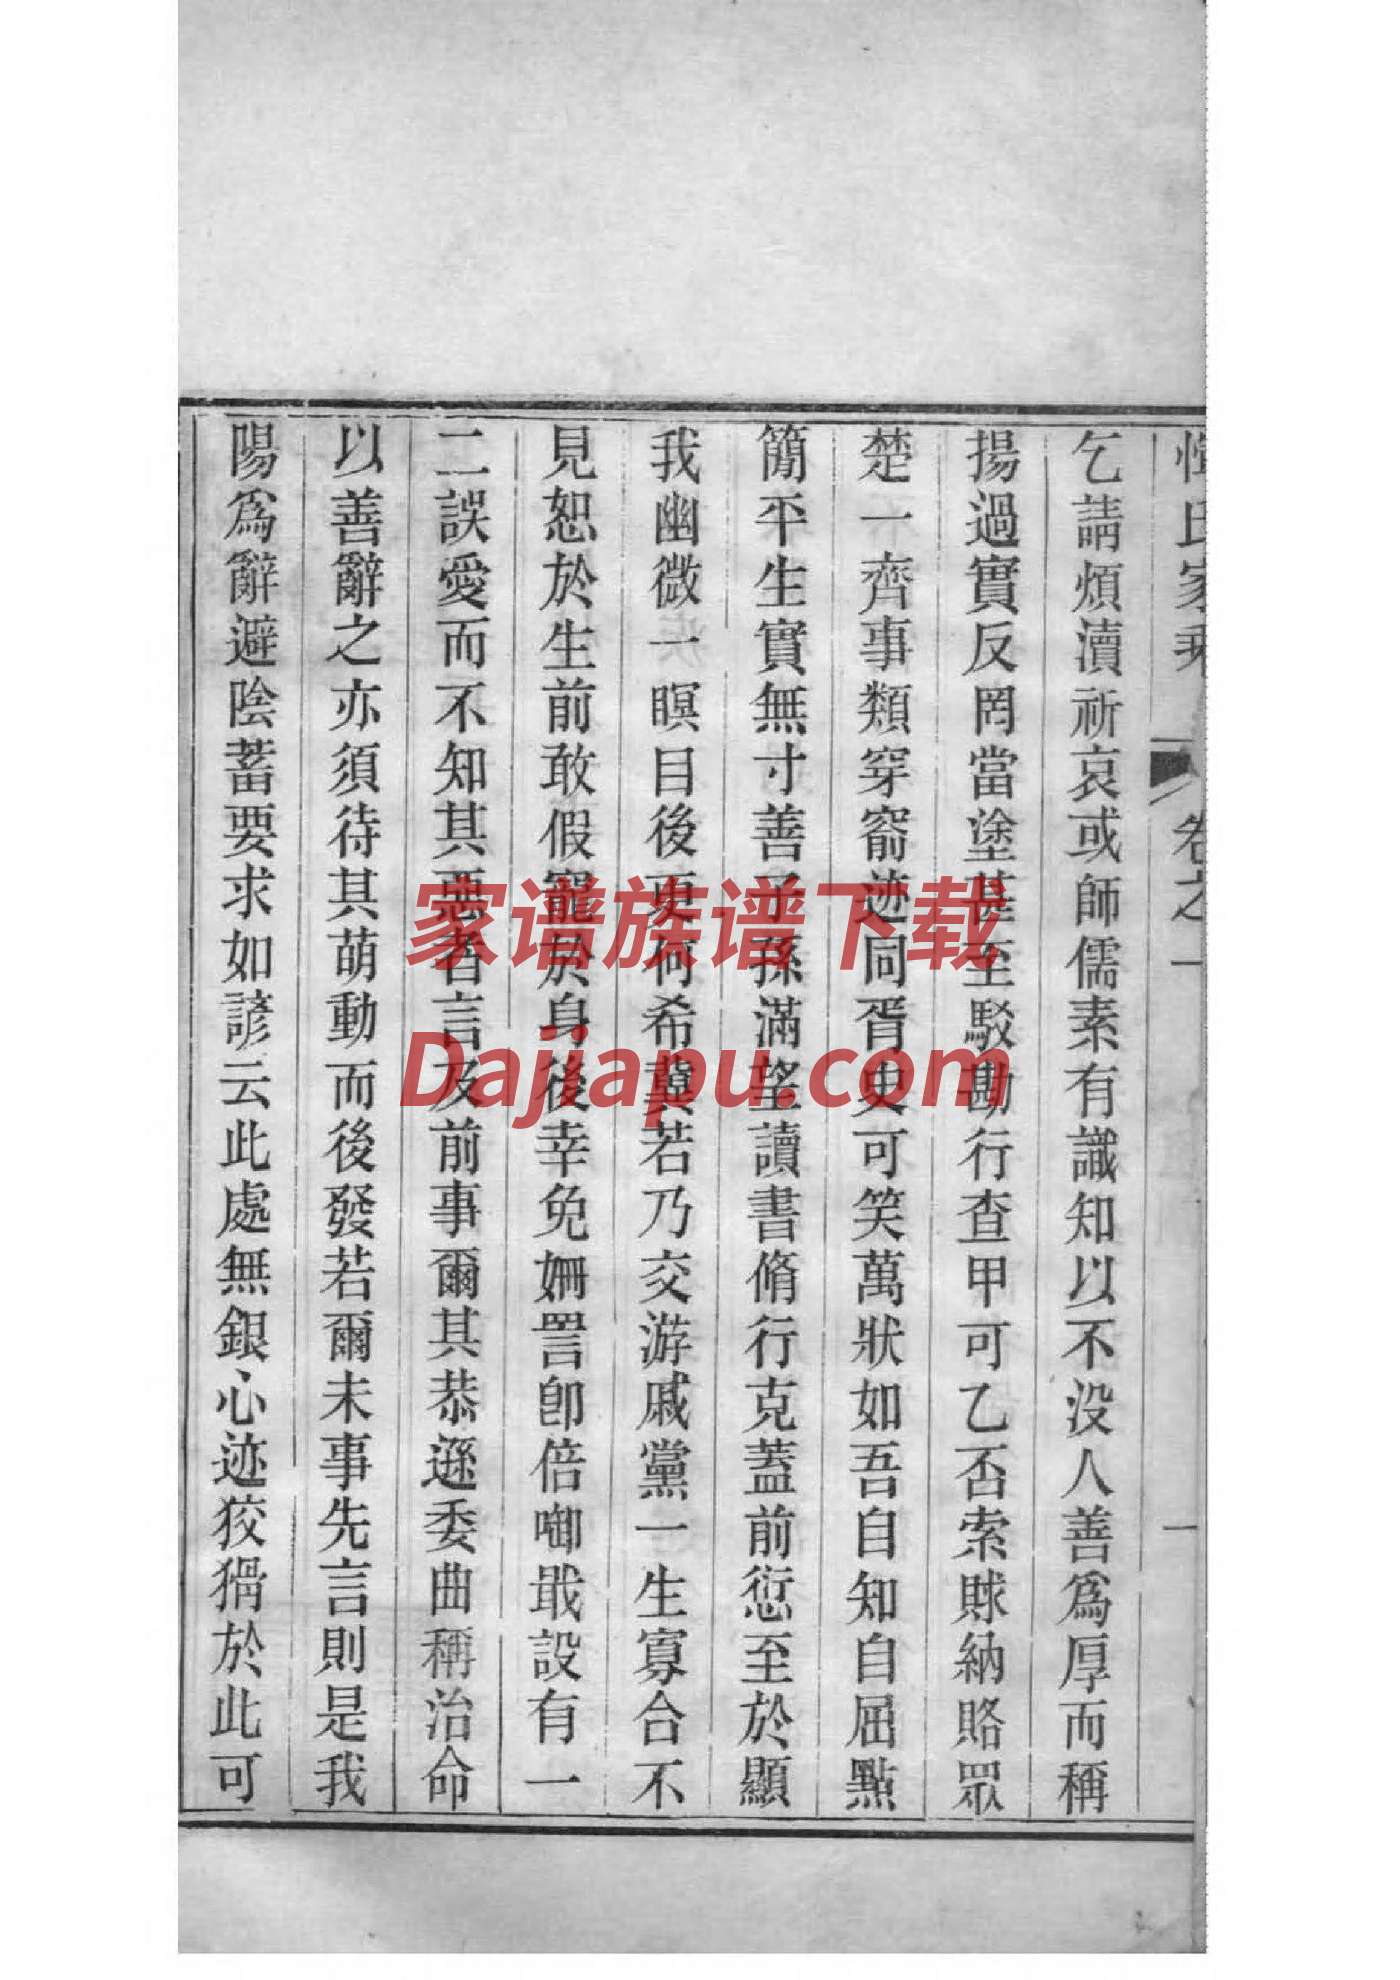 惲氏家乘 卷之一 一
乞請煩瀆祈哀或師儒素有識知以不没人善爲厚而稱
揚過實反罔當塗甚至駁勘行查甲可乙否索賕納賂眾
楚一齊事類穿窬迹同胥史可笑萬狀如吾自知自屈點
簡平生實無寸善子孫滿望讀書脩行克蓋前愆至於顯
我幽微一瞑目後更何希冀若乃交游戚黨一生寡合不
見恕於生前敢假寵於身後幸免姍詈卽倍啣戢設有一
二誤愛而不知其惡者言及前事爾其恭遜委曲稱治命
以善辭之亦須待其萌動而後發若爾未事先言則是我
陽爲辭避陰蓄要求如諺云此處無銀心迹狡猾於此可
家谱族谱下载
Dajiapu.com